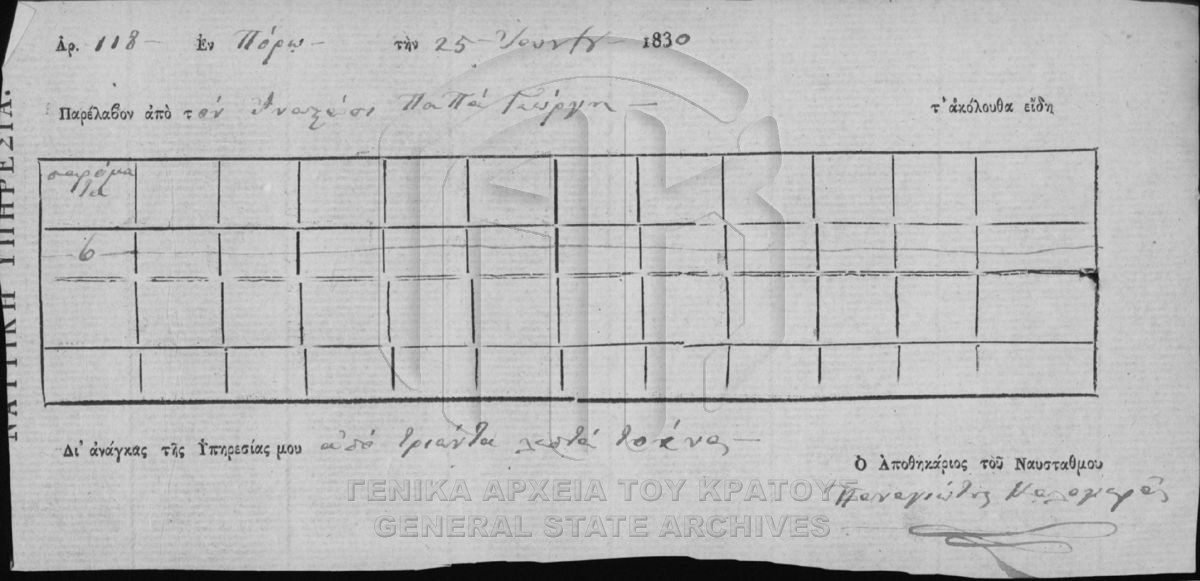 ΝΑΥΤΙΚΗ ΥΠΗΡΕΣΙΑ.
Ἀρ. 118 — Ἐν Πόρῳ — τὴν 25 — Ἰουνίου 1830
Παρέλαβον ἀπὸ τὸν Παπᾶ Γεώργη — τ' ἀκόλουθα εἴδη
6
Δι' ἀνάγκας τῆς Ὑπηρεσίας μου ἀπὸ τριάντα λεπτά —
Ὁ Ἀποθηκάριος τοῦ Ναυσταθμου
Παναγιώτης
ΓΕΝΙΚΑ ΑΡΧΕΙΑ ΤΟΥ ΚΡΑΤΟΥΣ
GENERAL STATE ARCHIVES